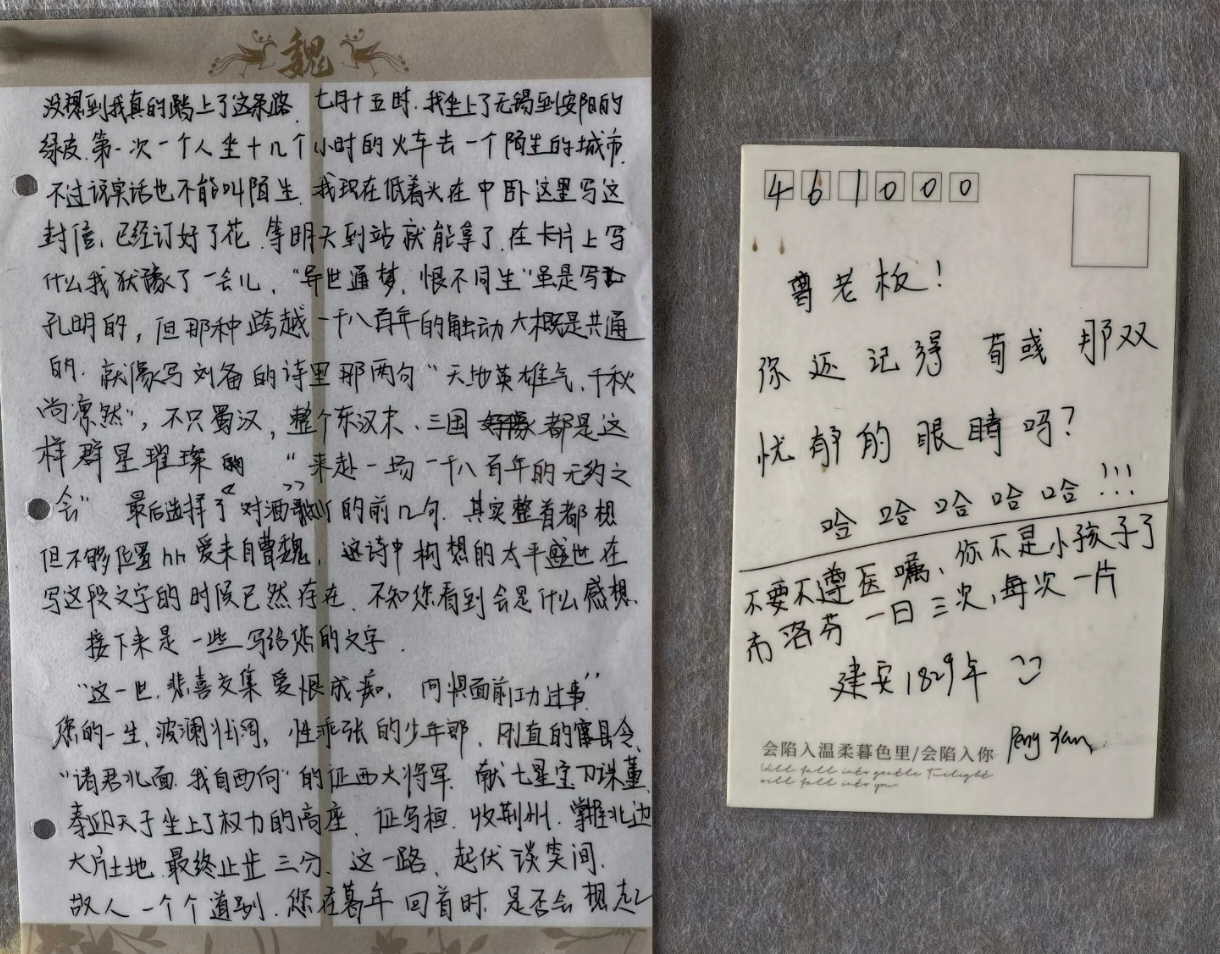 魏
没想到我真的踏上了这条路. 七月十五时. 我坐上了无锡到安阳的
绿皮. 第一次一个人坐十几个小时的火车去一个陌生的城市.
不过说实话也不能叫陌生. 我现在低着头在中卧这里写这
封信, 已经订好了花. 等明天到站就能拿了. 在卡片上写
什么我犹豫了一会儿, “异世通梦, 恨不同生”虽是写
孔明的, 但那种跨越一千八百年的触动大概是共通
的. 就像写刘备的诗里那两句“天地英雄气, 千秋
尚凛然”, 不只蜀汉, 整个东汉末、三国都是这
样群星璀璨的 “来赴一场一千八百年的无约之
会” 最后选择了“对酒歌”的前几句. 其实整首都想
但不够位置 hh 爱来自曹魏. 这诗中构想的太平盛世在
写这段文字的时候已然存在. 不知您看到会是什么感想.
接下来是一些写给您的文字.
“这一世, 悲喜交集 爱恨成痴, 何惧面前功过事”
您的一生, 波澜壮阔, 性乖张的少年郎. 刚直的县令.
“诸君北面. 我自西向”的征西大将军. 献七星宝刀诛董.
奉迎天子坐上了权力的高座. 征乌桓. 收荆州. 掌握北边
大片土地. 最终止步三分. 这一路, 起伏谈笑间.
故人一个个道别. 您在暮年回首时. 是否会想起
461000
曹老板!
你还记得荀彧那双
忧郁的眼睛吗?
哈哈哈哈哈!!!
不要不遵医嘱、你不是小孩子了
布洛芬一日三次, 每次一片
建安1829年
Peng Yan
会陷入温柔暮色里/会陷入你
Will fall into gentle Twilight
will fall into you